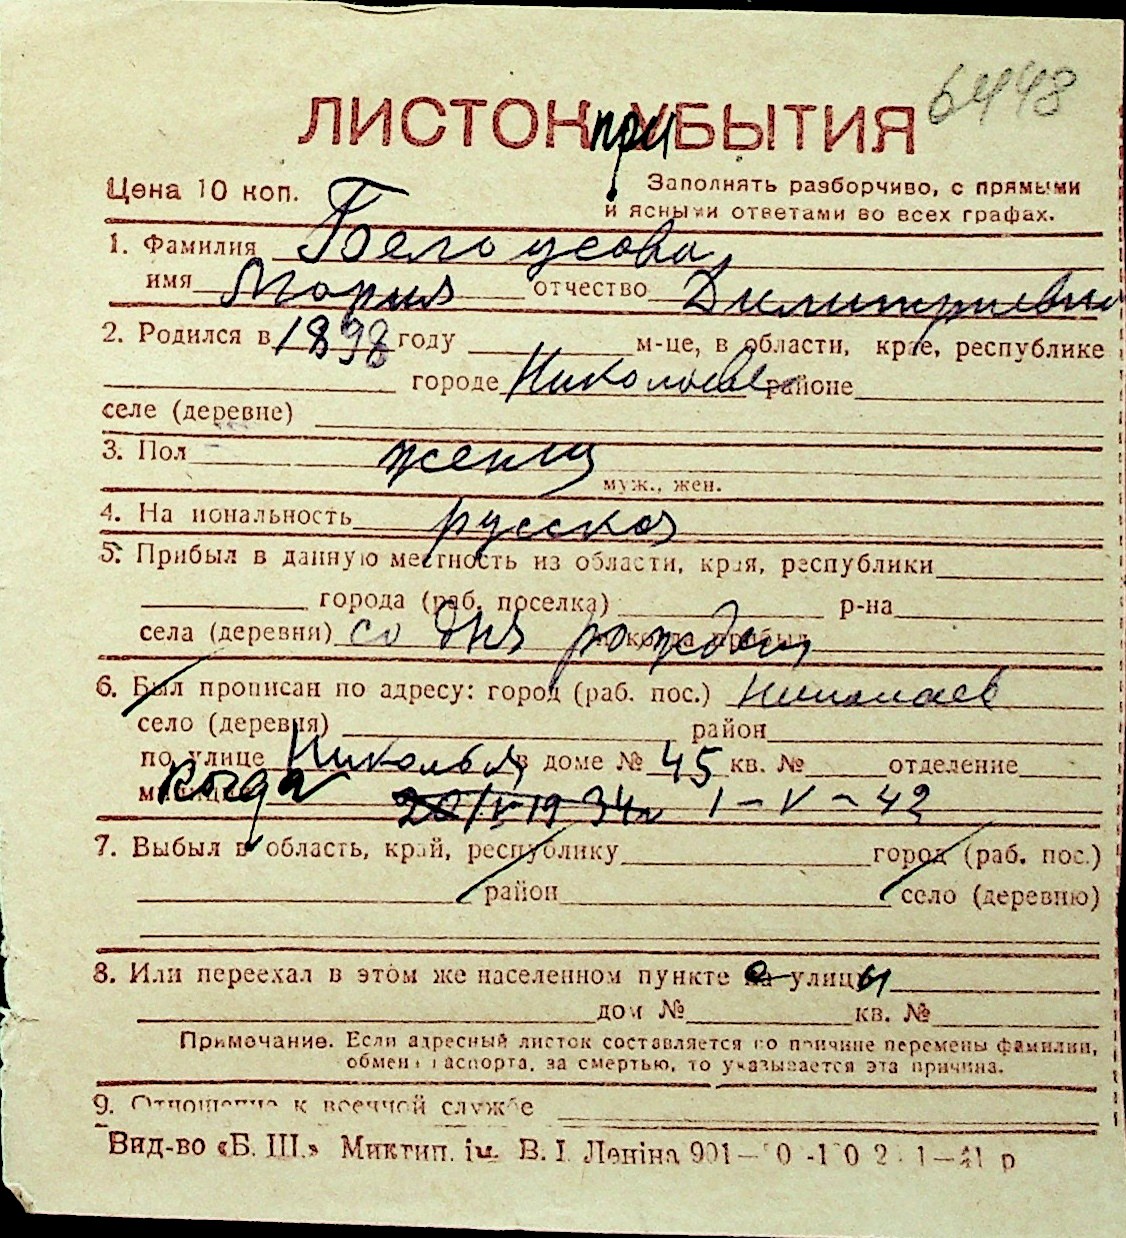 6448
ЛИСТОК приБЫТИЯ
Цена 10 коп.
Заполнять разборчиво, с прямыми
и ясными ответами во всех графах.
1. Фамилия Белоусова
имя Мария отчество Димитриевна
2. Родился в 1898 году м-це, в области, крае, республике
городе Николаеве районе
селе (деревне)
3. Пол женщ
муж., жен.
4. На иональность русская
5. Прибыл в данную местность из области, края, республики
города (раб. поселка) р-на
села (деревни) со дня рожден
6. Был прописан по адресу: город (раб. пос.) Николаев
село (деревня) район
по улице в доме № 45 кв. № отделение
когда 20/V-1934 I-V-42
7. Выбыл в область, край, республику город (раб. пос.)
район село (деревню)
8. Или переехал в этом же населенном пункте с улицы
дом № кв. №
Примечание. Если адресный листок составляется по причине перемены фамилии,
обмена паспорта, за смертью, то указывается эта причина.
9. Отношение к военной службе
Вид-во «Б. Ш.» Миктип. ім. В. І. Леніна 901—